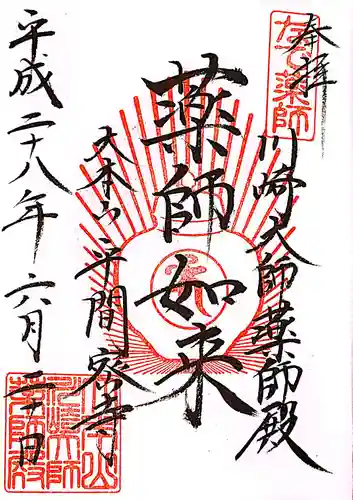 奉拝
なで薬師
川崎大師薬師殿
薬師如来
大本山平間密寺
平成二十八年六月二十日